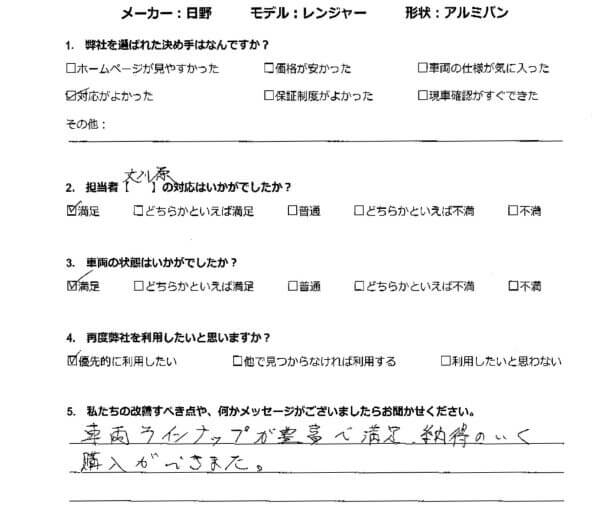 メーカー：日野　　モデル：レンジャー　　形状：アルミバン
1. 弊社を選ばれた決め手はなんですか？
□ホームページが見やすかった　□価格が安かった　□車両の仕様が気に入った
☑対応がよかった　□保証制度がよかった　□現車確認がすぐできた
その他：
2. 担当者【大川原】の対応はいかがでしたか？
☑満足　□どちらかといえば満足　□普通　□どちらかといえば不満　□不満
3. 車両の状態はいかがでしたか？
☑満足　□どちらかといえば満足　□普通　□どちらかといえば不満　□不満
4. 再度弊社を利用したいと思いますか？
☑優先的に利用したい　□他で見つからなければ利用する　□利用したいと思わない
5. 私たちの改善すべき点や、何かメッセージがございましたらお聞かせください。
車両ラインナップが豊富で満足、納得のいく
購入ができました。